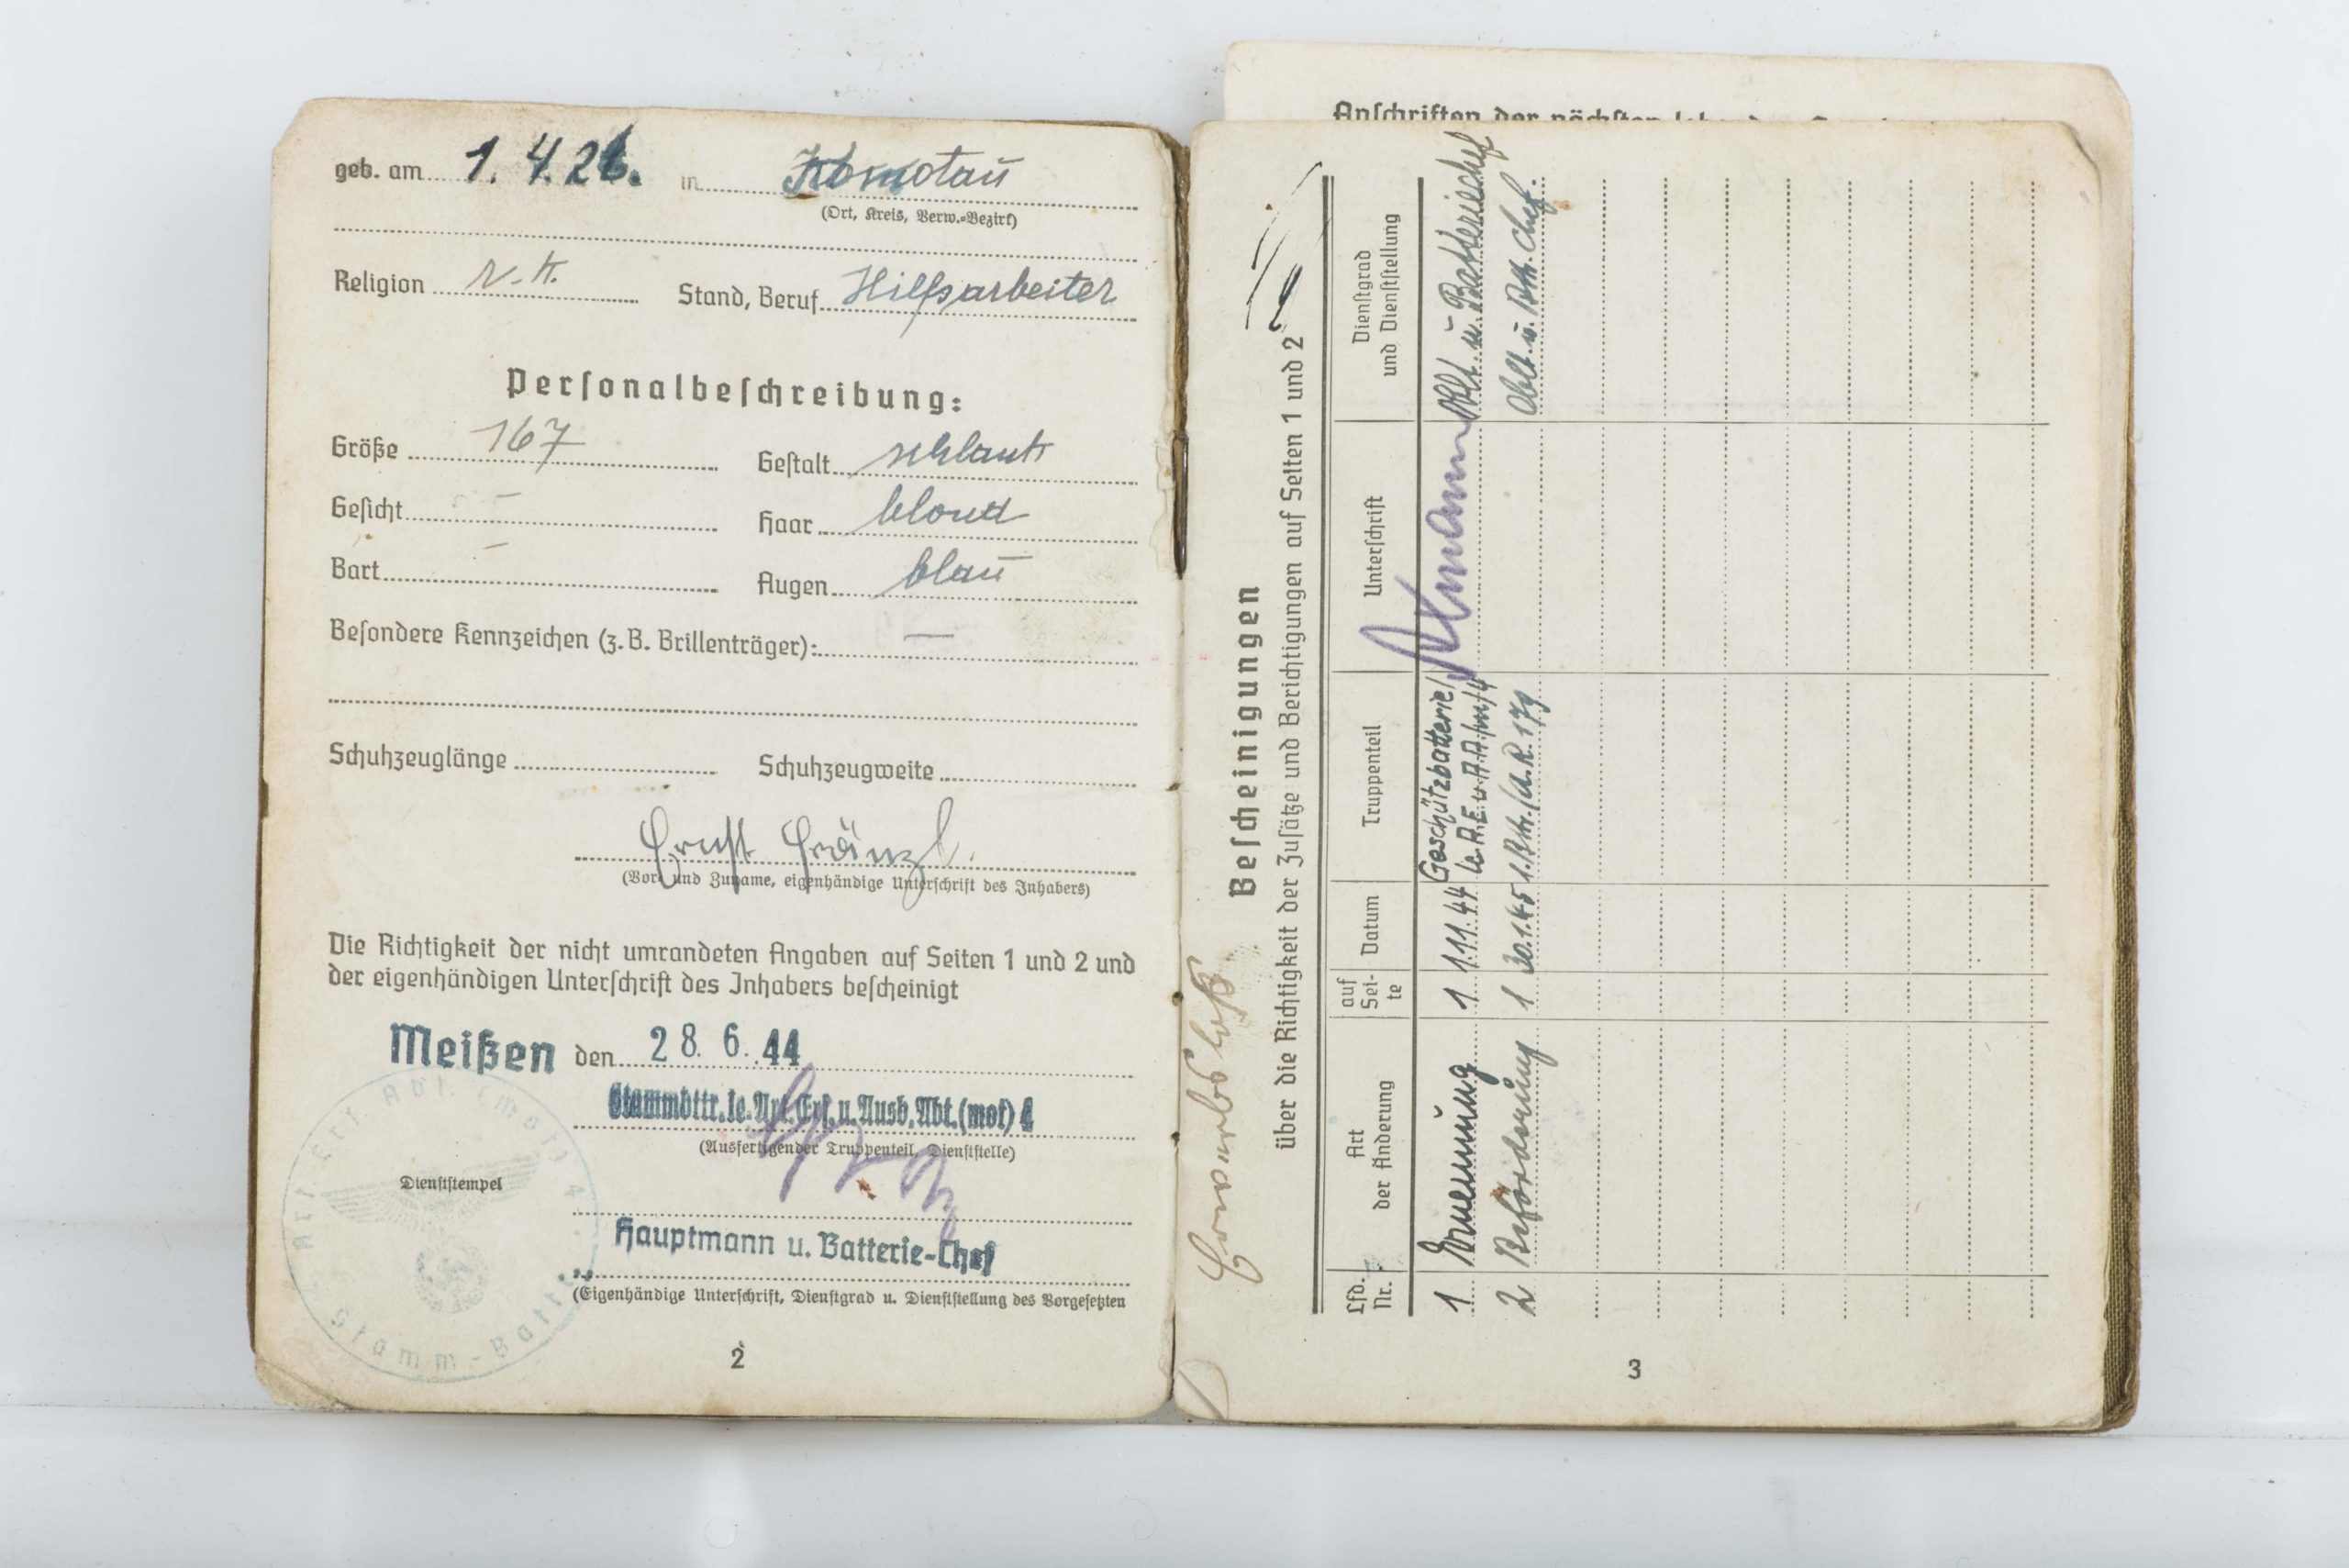 geb. am 1. 4. 26. in Komotau
(Ort, Kreis, Verw.-Bezirk)
Religion r.-k. Stand, Beruf Hilfsarbeiter
Personalbeschreibung:
Größe 167 Gestalt schlank
Gesicht — Haar blond
Bart — Augen blau
Besondere Kennzeichen (z. B. Brillenträger): —
Schuhzeuglänge Schuhzeugweite
Ernst Fränzl.
(Vor- und Zuname, eigenhändige Unterschrift des Inhabers)
Die Richtigkeit der nicht umrandeten Angaben auf Seiten 1 und 2 und
der eigenhändigen Unterschrift des Inhabers bescheinigt
Meißen den 28. 6. 44
Stammbttr. le. Art. Ers. u. Ausb. Abt. (mot) 4
(Ausfertigender Truppenteil, Dienststelle)
Dienststempel
Art. Ers. Abt. (mot) 4
Stamm-Batt
Hauptmann u. Batterie-Chef
(Eigenhändige Unterschrift, Dienstgrad u. Dienststellung des Vorgesetzten
2
Anschriften der nächsten
Bescheinigungen
über die Richtigkeit der Zusätze und Berichtigungen auf Seiten 1 und 2
Lfd. Nr. Art der Änderung auf Sei- te Datum Truppenteil Unterschrift Dienstgrad und Dienststellung
1 Ernennung 1 1.11.44 Geschützbatterie/ le. A. E. u. A. A. (m) 4 Oblt. u. Batteriechef
2 Beförderung 1 30.1.45 1. Bttr./A.R. 179 Oblt. u. Bttr. Chef.
3